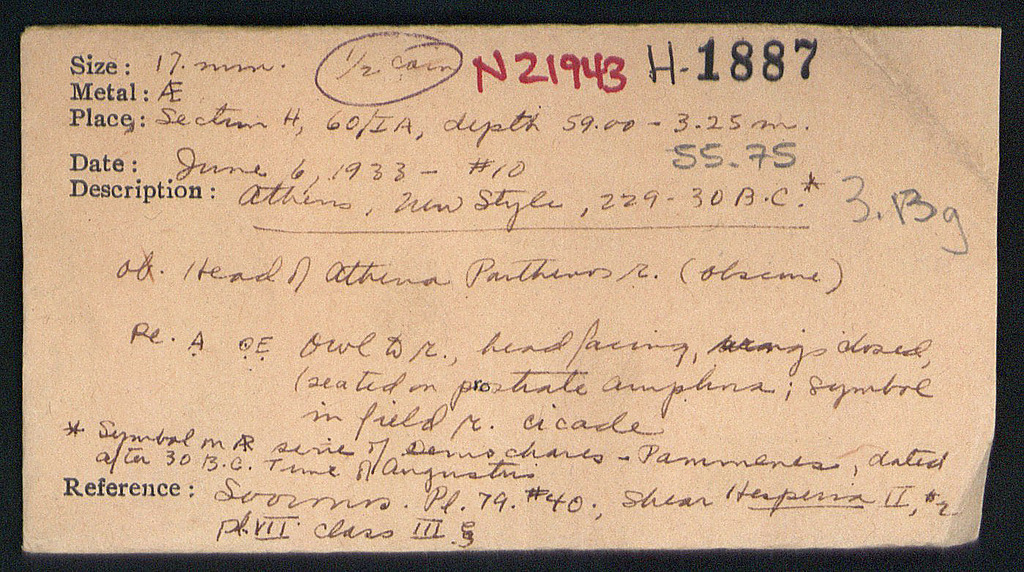 Size: 17. mm. 1/2 coin N 21943 H-1887
Metal: Æ
Place: Section H, 60/IA, depth 59.00 - 3.25 m.
55.75
Date: June 6, 1933 - #10
Description: Athens, New Style, 229-30 B.C.* 3. Bg
ob. Head of Athena Parthenos r. (obscure)
Re. A ΘE Owl to r., head facing, wings closed,
(seated on prostrate amphora; symbol
in field r. cicade
* Symbol on AR serie of Demochares - Pammenes, dated
after 30 B.C. Time of Augustus
Reference: Svoronos. Pl. 79. #40., Shear Hesperia II, #2
pl. VII class III